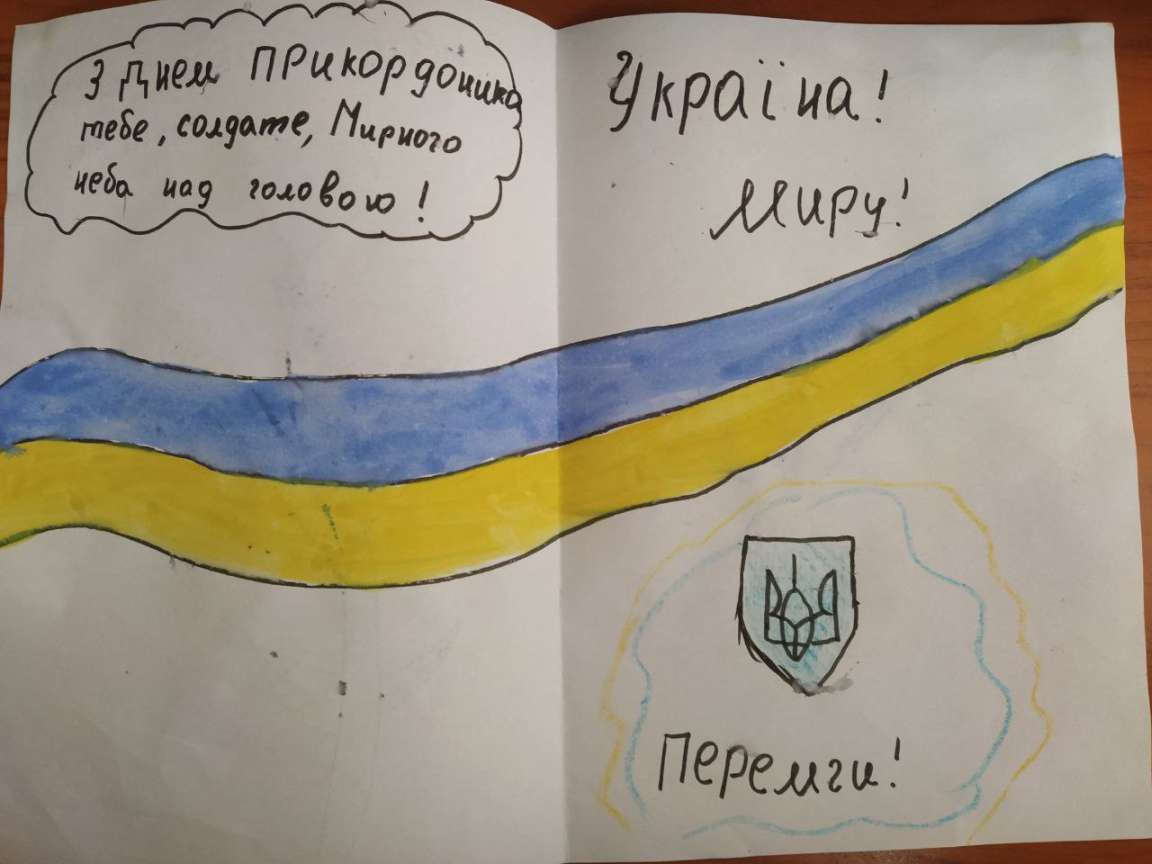 З Днем Прикордоника
тебе, солдате, Мирного
неба над головою!
Україна!
Миру!
Перемги!